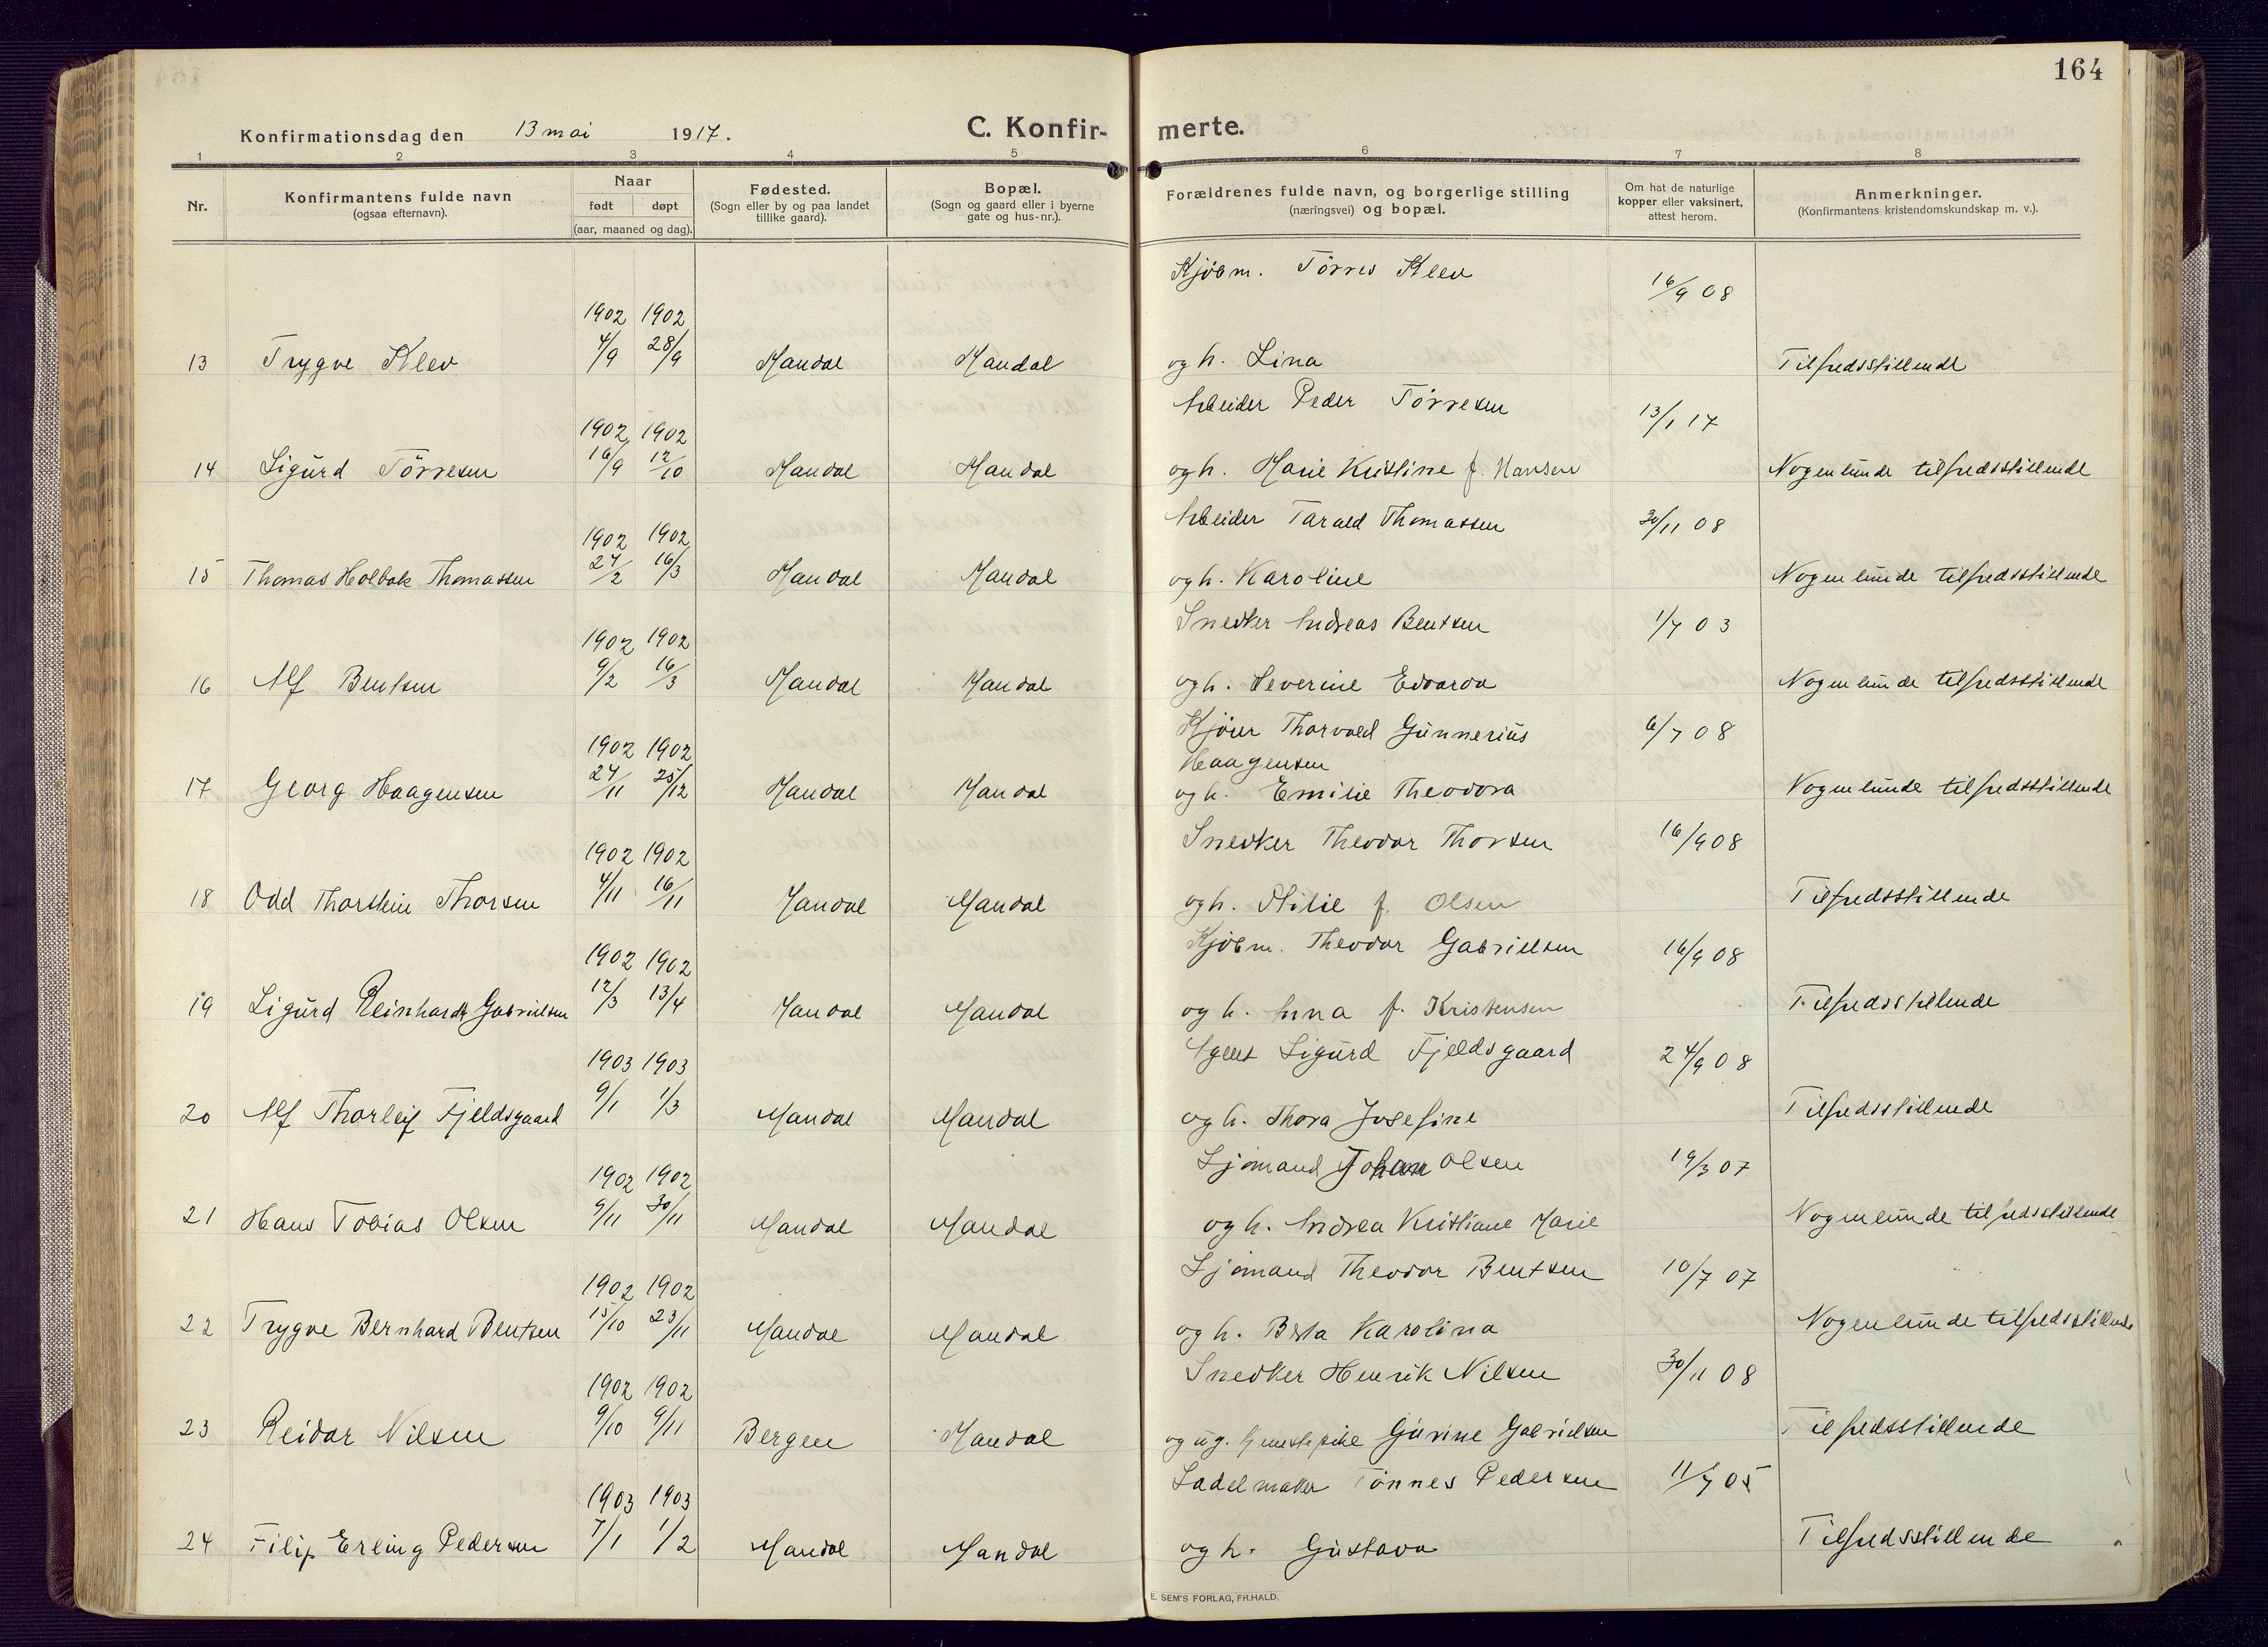 164
Konfirmationsdag den 13 mai 1917.
C. Konfir- merte.
1 2 3 4 5 6 7 8
Nr.
Konfirmantens fulde navn
(ogsaa efternavn).
Naar
født døpt
(aar, maaned og dag).
Fødested.
(Sogn eller by og paa landet
tillike gaard).
Bopæl.
(Sogn og gaard eller i byerne
gate og hus-nr.).
Forældrenes fulde navn, og borgerlige stilling
(næringsvei) og bopæl.
Om hat de naturlige
kopper eller vaksinert,
attest herom.
Anmerkninger.
(Konfirmantens kristendomskundskap m. v.).
Kjöbm. Törres Klev 16/9 08
1902 1902
13 Trygve Klev 4/9 28/9 Mandal Mandal og h. Lina Tilfredsstillende
Arbeider Peder Törresen 13/1 17
1902 1902
14 Sigurd Törresen 16/9 12/10 Mandal Mandal og h. Marie Kristine f. Hansen Nogenlunde tilfredsstillende
Arbeider Tarald Thomassen 30/11 08
1902 1902
15 Thomas Holbak Thomassen 24/2 16/3 Mandal Mandal og h. Karoline Nogenlunde tilfredsstillende
Snedker Andreas Bentsen 1/7 03
1902 1902
16 Alf Bentsen 9/2 16/3 Mandal Mandal og h. Severine Edvarda Nogenlunde tilfredsstillende
Kjörer Thorvald Gunnerius 6/7 08
Haagensen
1902 1902
17 Georg Haagensen 24/11 25/12 Mandal Mandal og h. Emilie Theodora Nogenlunde tilfredsstillende
Snedker Theodor Thorsen 16/9 08
1902 1902
18 Odd Thorstein Thorsen 4/11 16/11 Mandal Mandal og h. f. Olsen Tilfredsstillende
Kjöbm. Theodor Gabrielsen 16/9 08
1902 1902
19 Sigurd Reinhardt Gabrielsen 12/3 13/4 Mandal Mandal og h. Anna f. Kristensen Tilfredsstillende
Agent Sigurd Fjeldsgaard 24/9 08
1903 1903
20 Alf Thorleif Fjeldsgaard 9/1 1/3 Mandal Mandal og h. Thora Josefine Tilfredsstillende
Sjömand Johan Olsen 19/3 07
1902 1902
21 Hans Tobias Olsen 9/11 30/11 Mandal Mandal og h. Andrea Kristiane Marie Nogenlunde tilfredsstillende
Sjömand Theodor Bentsen 10/7 07
1902 1902
22 Trygve Bernhard Bentsen 15/10 23/11 Mandal Mandal og h. Karolina Nogenlunde tilfredsstillende
Snedker Henrik Nilsen 30/11 08
1902 1902
23 Reidar Nilsen 9/10 9/11 Bergen Mandal og ug. tjenestepike Gurine Gabrielsen Tilfredsstillende
Sadelmaker Tönnes Pedersen 11/7 05
1903 1903
24 Filip Erling Pedersen 7/1 1/2 Mandal Mandal og h. Gustava Tilfredsstillende
E. SEM'S FORLAG, FR.HALD.